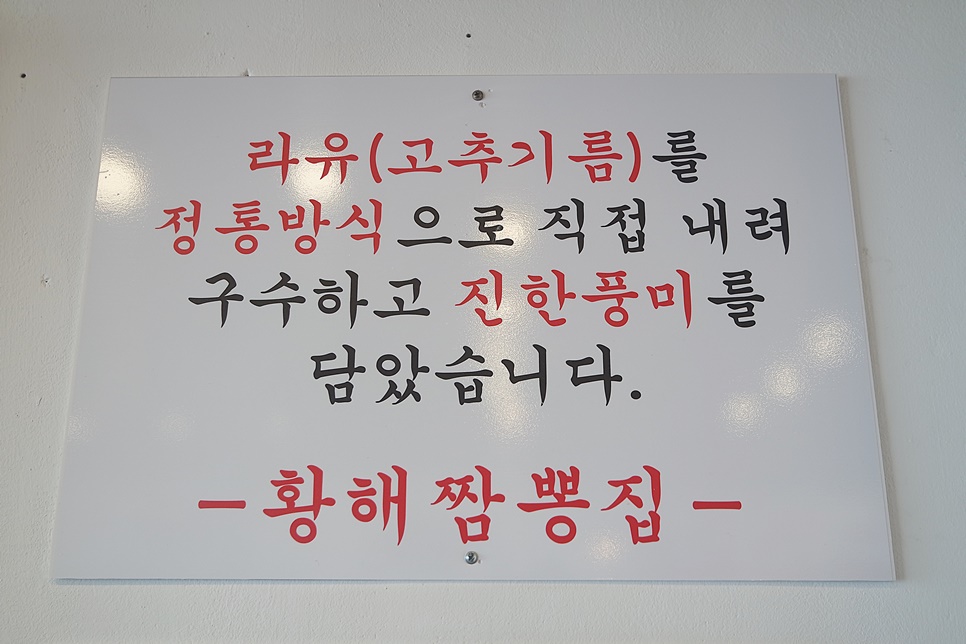 라유(고추기름)를
정통방식으로 직접 내려
구수하고 진한풍미를
담았습니다.
-황해짬뽕집-